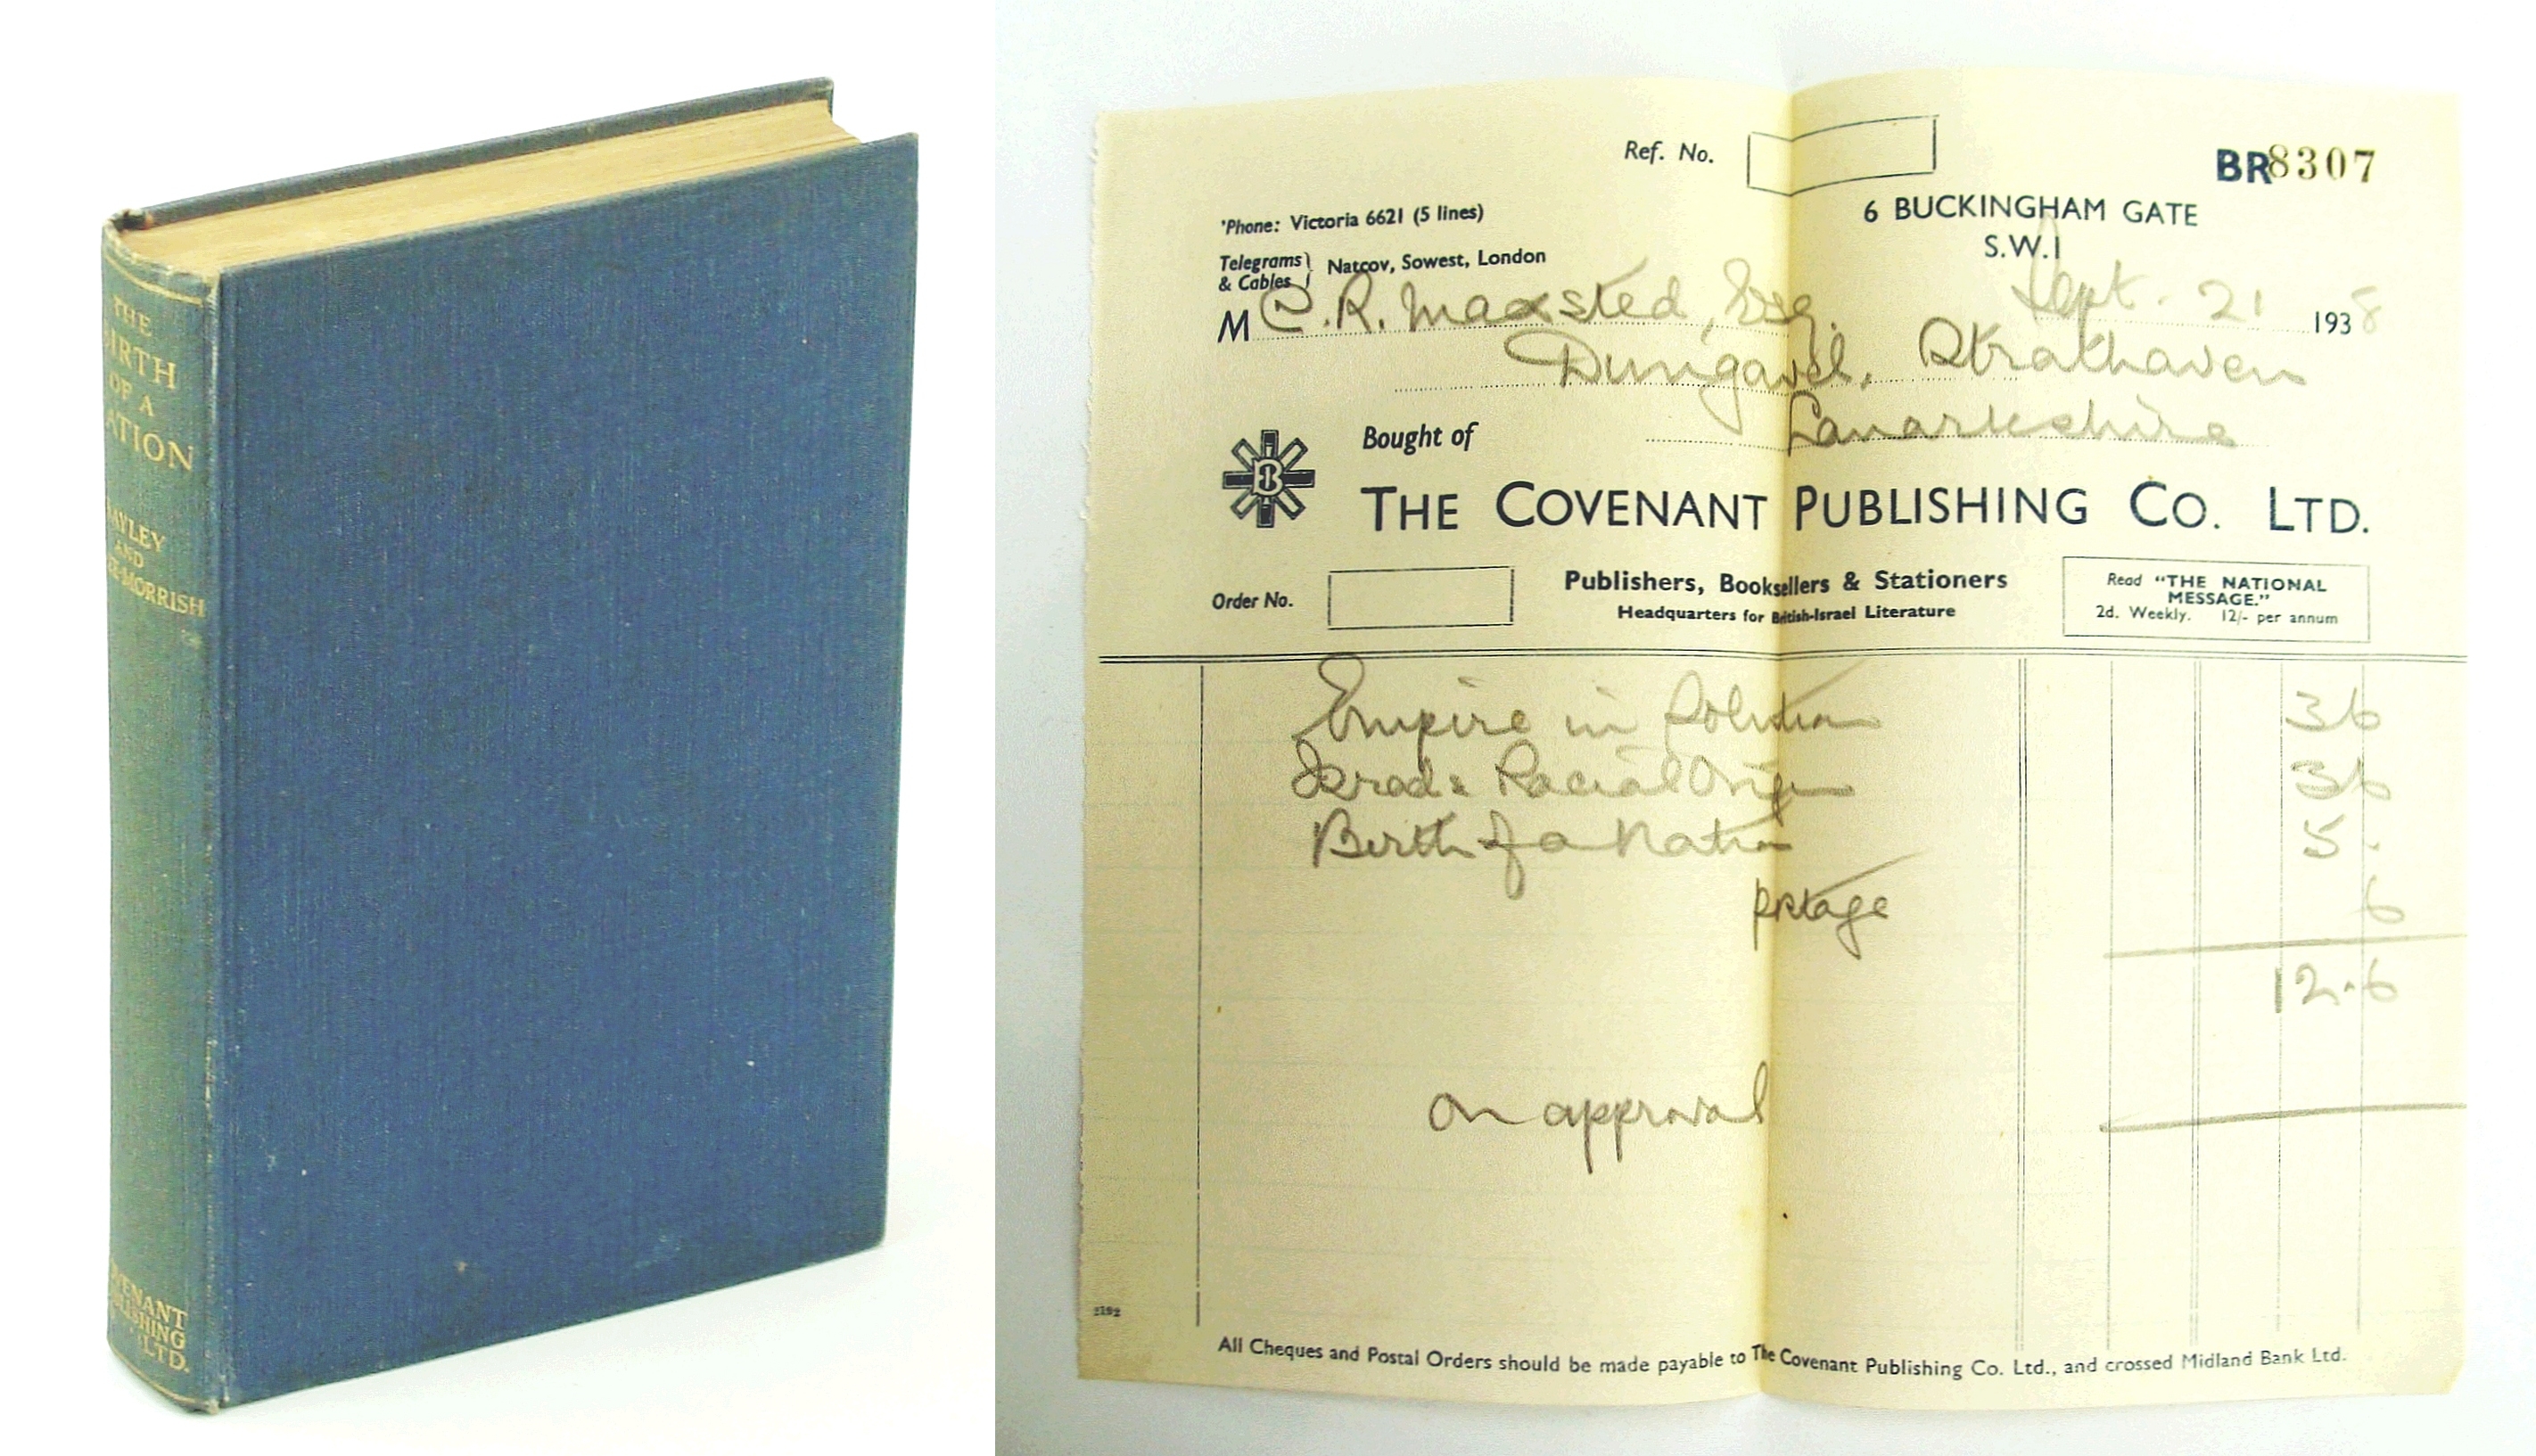 THE
BIRTH
OF A
NATION
AYLEY
AND
-MORRISH
COVENANT
PUBLISHING
LTD.
Ref. No.
BR8307
'Phone: Victoria 6621 (5 lines)
6 BUCKINGHAM GATE
S.W.1
Telegrams & Cables } Natcov, Sowest, London
Sept. 21 1938
M C. R. Maxsted, Esq.
Dungavel, Strathaven
Lanarkshire
Bought of
B
THE COVENANT PUBLISHING CO. LTD.
Order No.
Publishers, Booksellers & Stationers
Headquarters for British-Israel Literature
Read "THE NATIONAL
MESSAGE."
2d. Weekly. 12/- per annum
Empire in Solution 3 6
Israels Racial Origin 3 6
Birth of a Nation 5 .
Postage 6
12.6
on approval
2192
All Cheques and Postal Orders should be made payable to The Covenant Publishing Co. Ltd., and crossed Midland Bank Ltd.